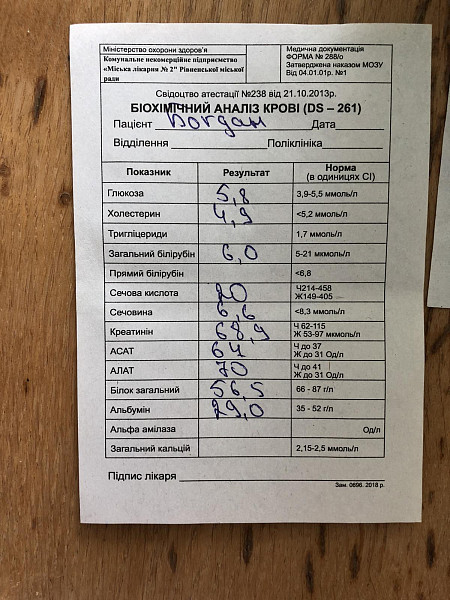 Міністерство охорони здоров'я
Комунальне некомерційне підприємство
«Міська лікарня № 2" Рівненської міської
ради
Медична документація
ФОРМА № 288/о
Затверджена наказом МОЗУ
Від 04.01.01р. №1
Свідоцтво атестації №238 від 21.10.2013р.
БІОХІМІЧНИЙ АНАЛІЗ КРОВІ (DS – 261)
Пацієнт Богдан Дата
Відділення Поліклініка
Показник Результат Норма
(в одиницях СІ)
Глюкоза 5,8 3,9-5,5 ммоль/л
Холестерин 4,9 <5,2 ммоль/л
Тригліцериди 1,7 ммоль/л
Загальний білірубін 6,0 5-21 мкмоль/л
Прямий білірубін <6,8
Сечова кислота Ч214-458
Ж149-405
Сечовина 6,6 <8,3 ммоль/л
Креатинін 68,9 Ч 62-115
Ж 53-97 мкмоль/л
АСАТ Ч до 37
Ж до 31 Од/л
АЛАТ 70 Ч до 41
Ж до 31 Од/л
Білок загальний 56,5 66 - 87 г/л
Альбумін 29,0 35 - 52 г/л
Альфа амілаза Од/л
Загальний кальцій 2,15-2,5 ммоль/л
Підпис лікаря
Зам. 0696. 2018 р.